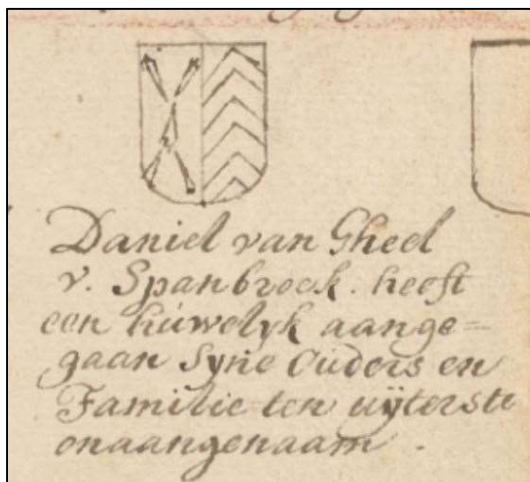 Daniel van Gheel
v. Spanbroek. heeft
een húwelyk aange=
gaan Syne Ouders en
Familie ten uÿterste
onaangenaam.